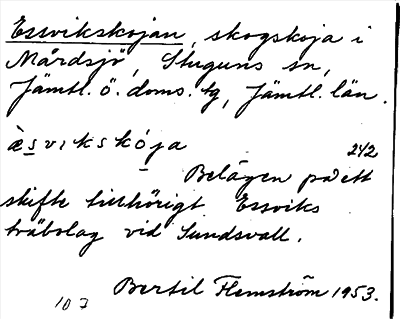 Essvikskojan, skogskoja i
Mårdsjö, Stuguns sn,
Jämtl. ö. doms. tg, Jämtl. län.
àsvikskója 242
Belägen på ett
skifte tillhörigt Essviks
träbolag vid Sundsvall.
Bertil Flemström 1953.
103